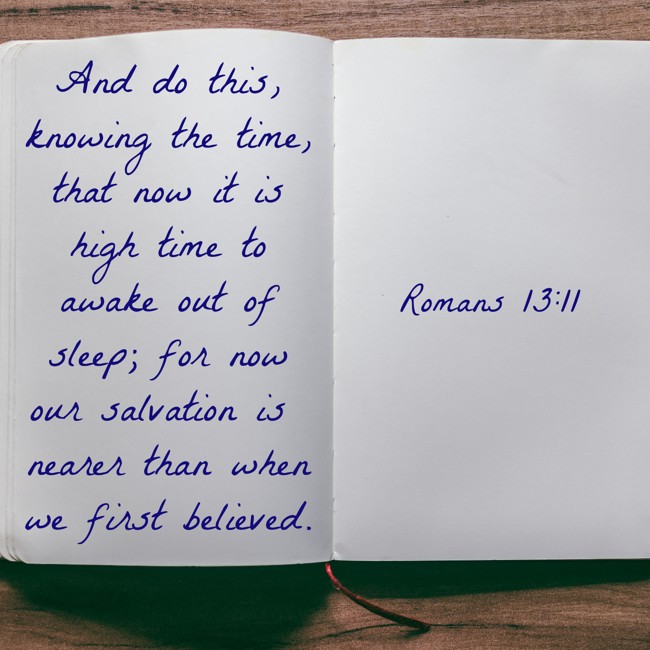 And do this,
knowing the time,
that now it is
high time to
awake out of
sleep; for now
our salvation is
nearer than when
we first believed.
Romans 13:11